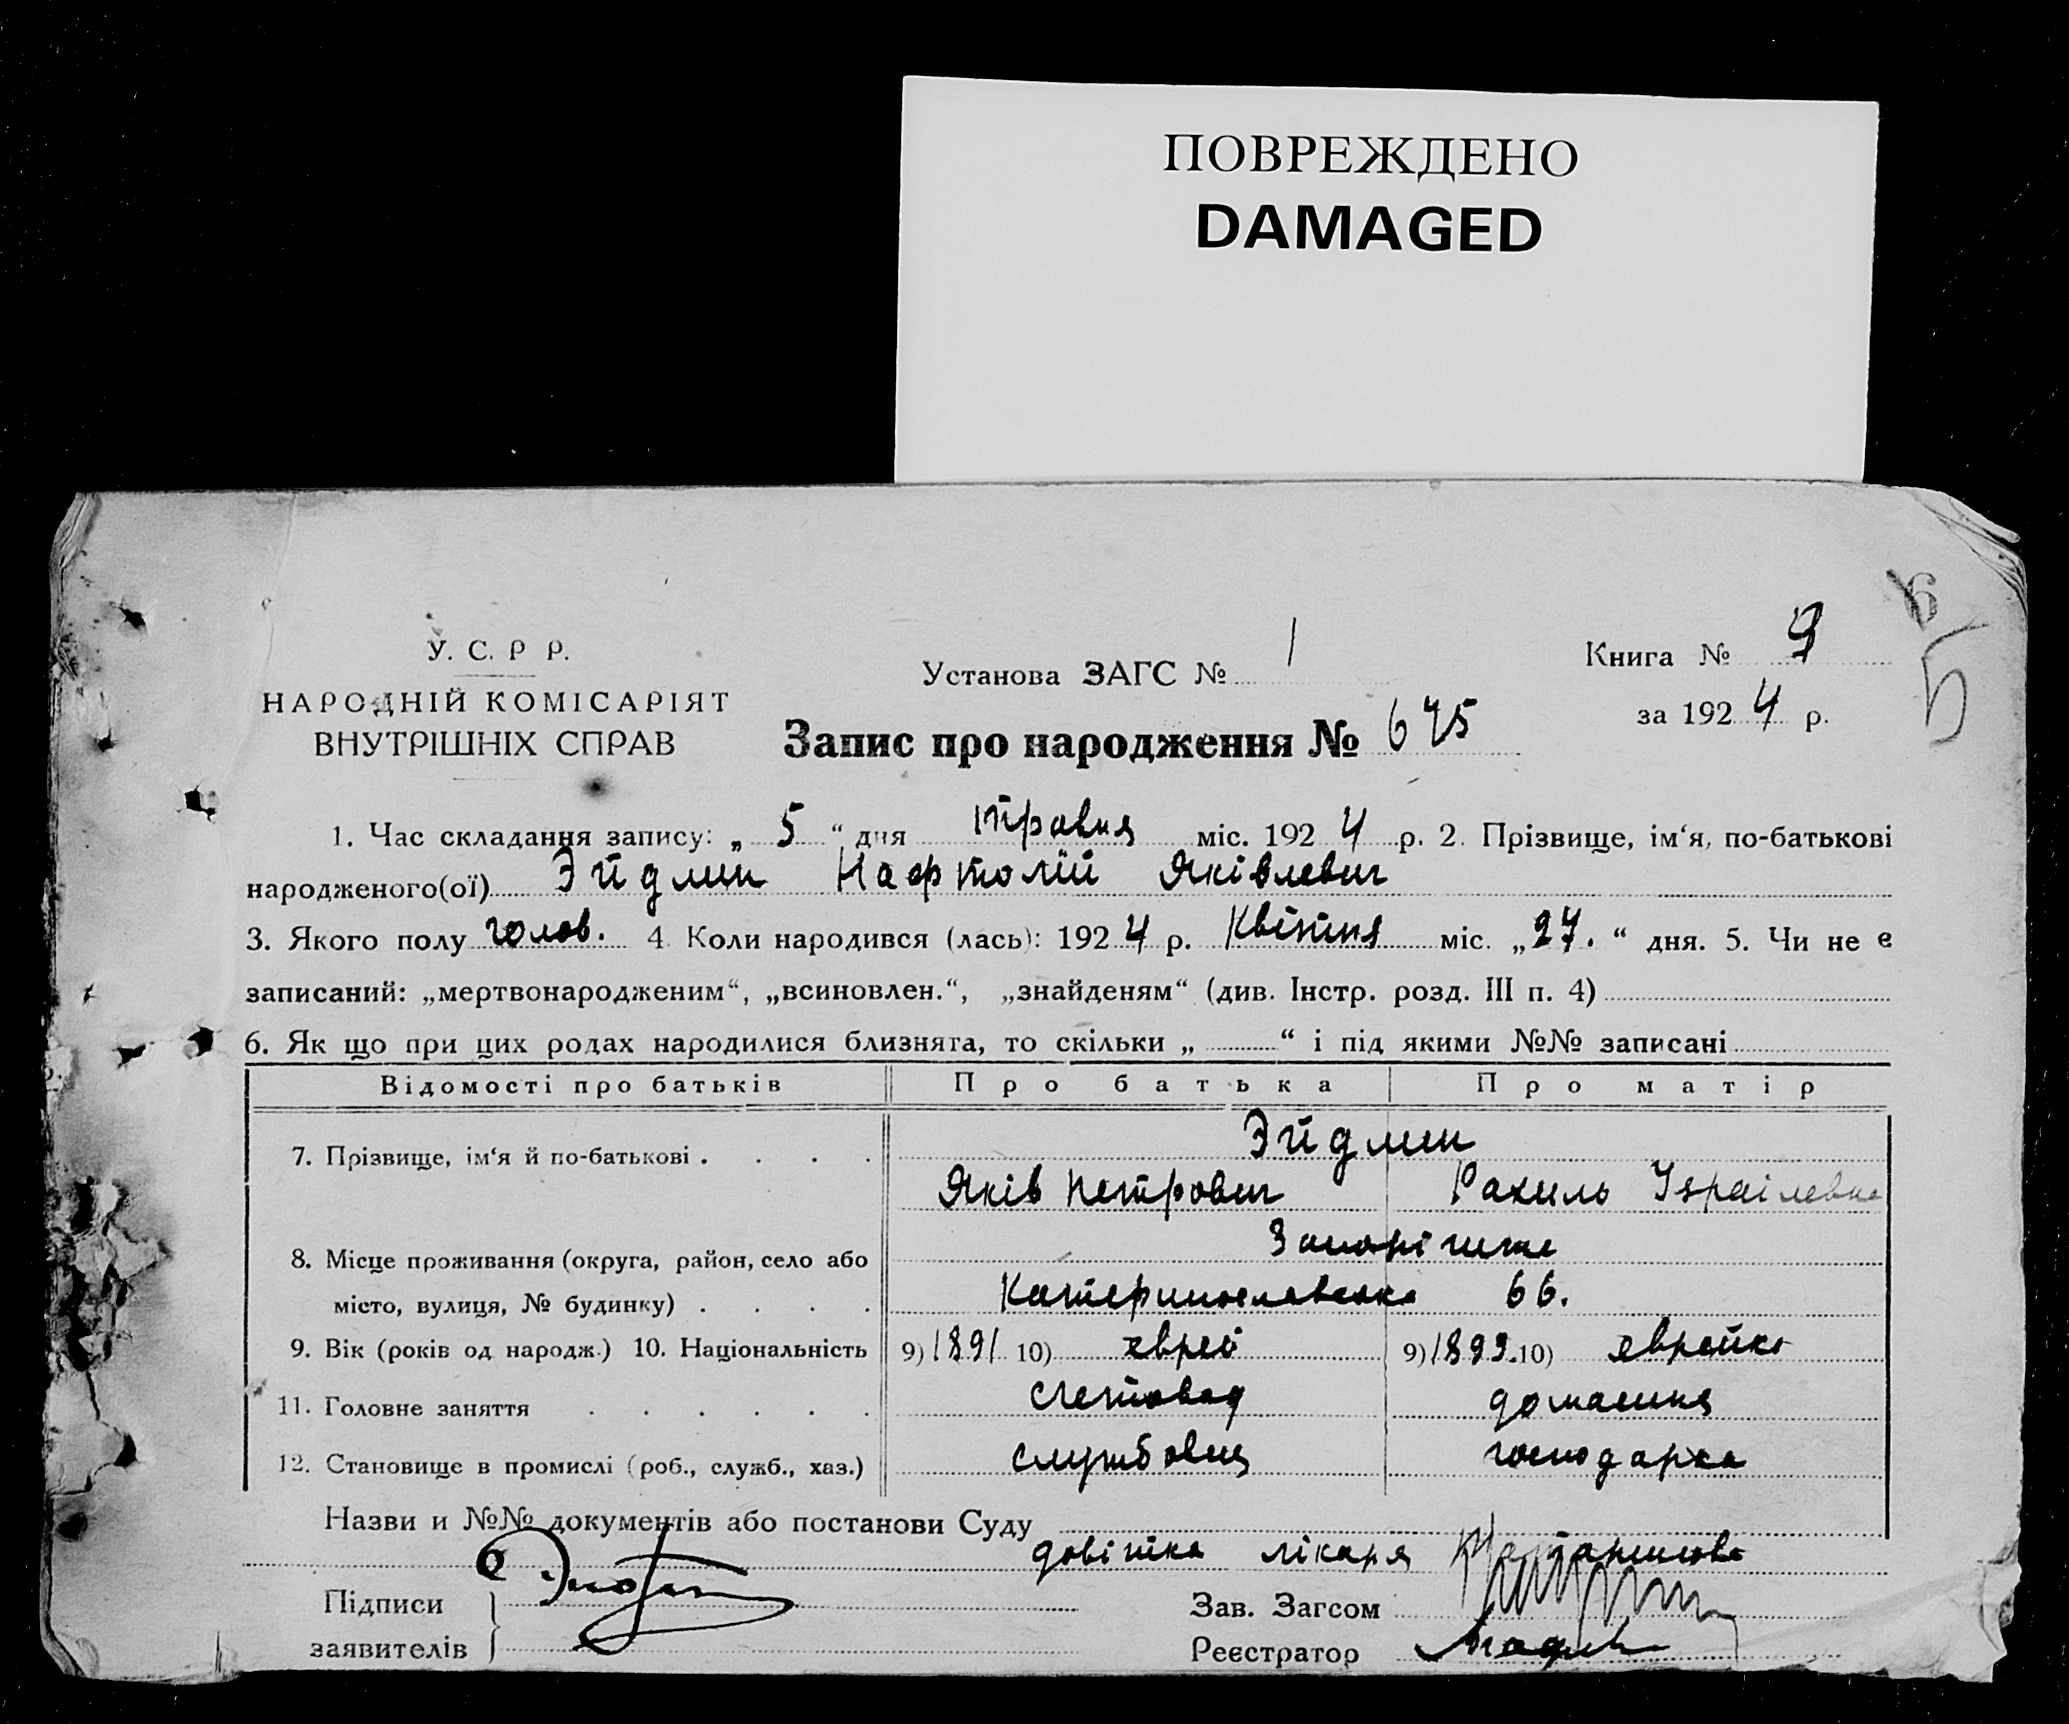 ПОВРЕЖДЕНО
DAMAGED
У. С. Р Р.
НАРОДНІЙ КОМІСАРІЯТ
ВНУТРІШНІХ СПРАВ
Установа ЗАГС № 1
Запис про народження № 675
Книга № 9
за 1924 р.
1. Час складання запису: „ 5 “ дня травня міс. 1924 р. 2. Прізвище, ім‘я, по-батькові
народженого(ої) Эйдлин Нафтолій Яківлевич
3. Якого полу чолов. 4 Коли народився (лась): 1924 р. Квітня міс. „27.“ дня. 5. Чи не є
записаний: „мертвонародженим“, „всиновлен.“, „знайденям“ (див. Інстр. розд. III п. 4)
6. Як що при цих родах народилися близнята, то скільки „ “ і під якими №№ записані
Відомості про батьків Про батька Про матір
Эйдлин
7. Прізвище, ім‘я й по-батькові . . . . Яків Петрович Рахиль Ізраілевна
8. Місце проживання (округа, район, село або Запоріжже
місто, вулиця, № будинку) . . . . Катеринославська 66.
9. Вік (років од народж.) 10. Національність 9) 1891 10) еврей 9) 1899. 10) еврейка
11. Головне заняття . . . . . . счетовод домашня
12. Становище в промислі (роб., служб., хаз.) службовец господарка
Назви и №№ документів або постанови Суду
довітка лікаря
Підписи
заявителів
Зав. Загсом
Реєстратор